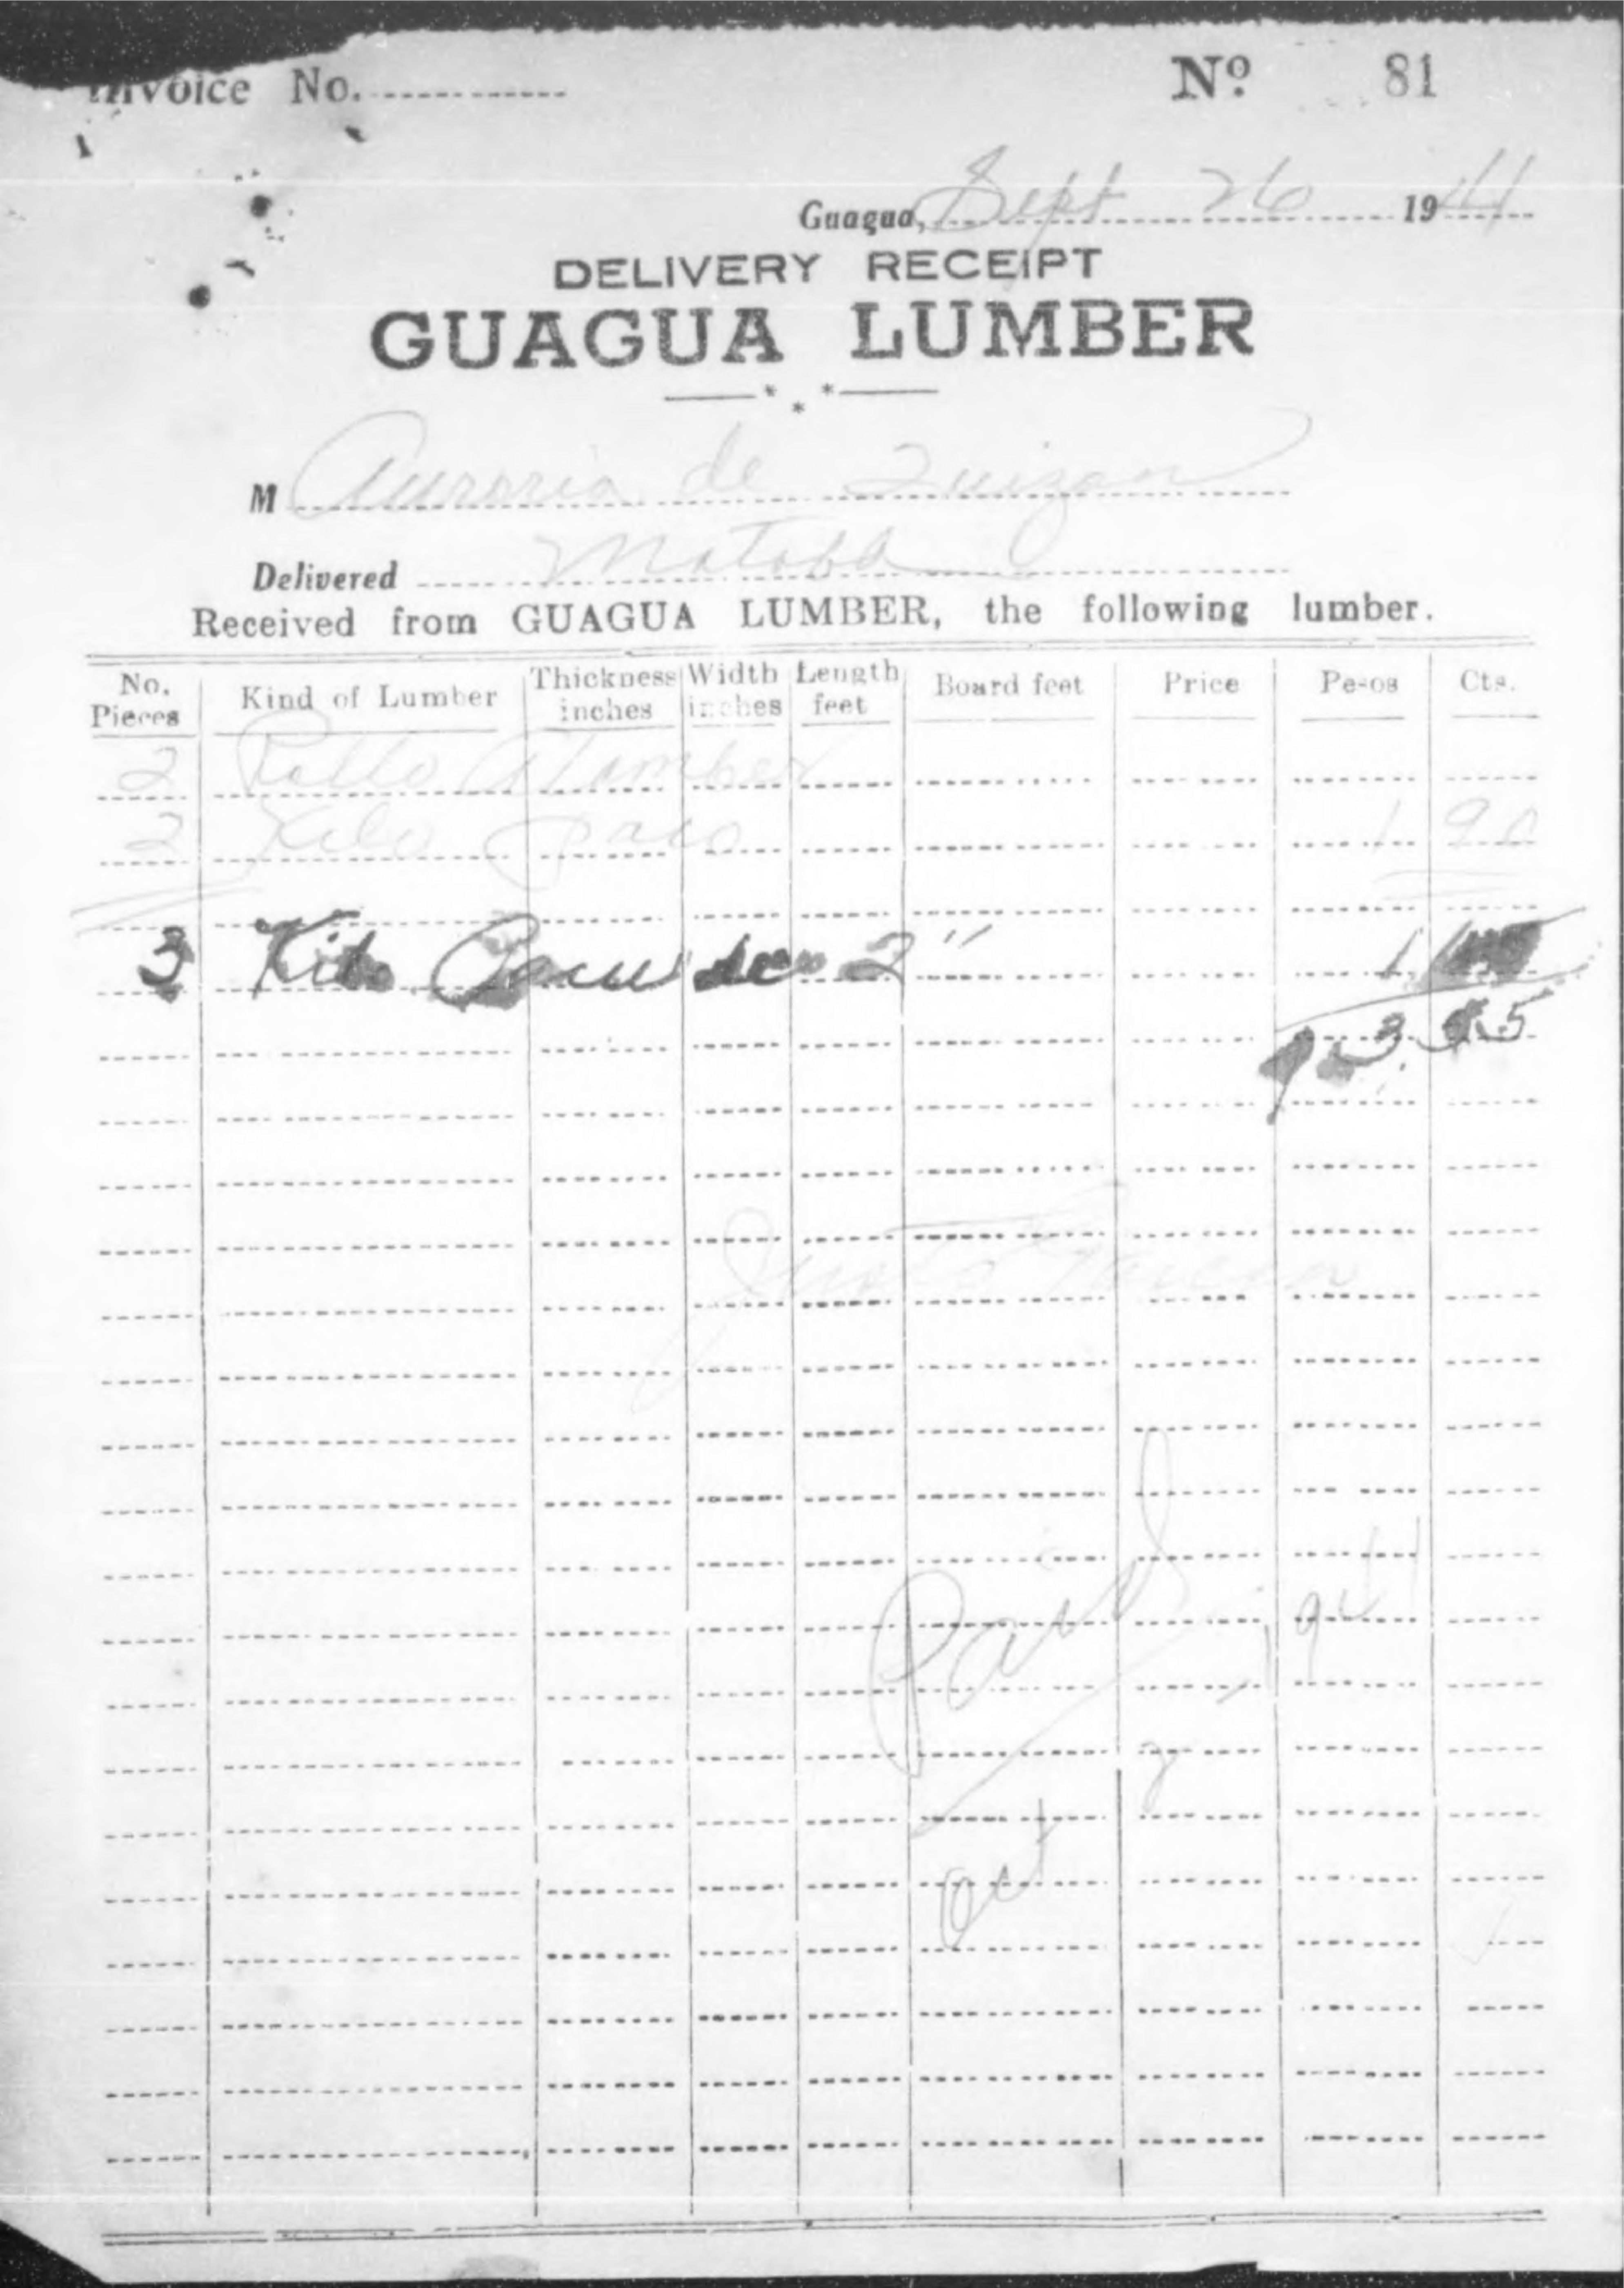 Invoice No. Nº 81
Guagua, Sept 26 1941
DELIVERY RECEIPT
GUAGUA LUMBER
M de
Delivered
Received from GUAGUA LUMBER, the following lumber.
No. Pieces Kind of Lumber Thickness inches Width inches Length feet Board feet Price Pesos Cts.
2 Rollo Alamber
2 Kilo 1 90
3 Kilo de 2" 1
3
Paid
1941
2
Oct